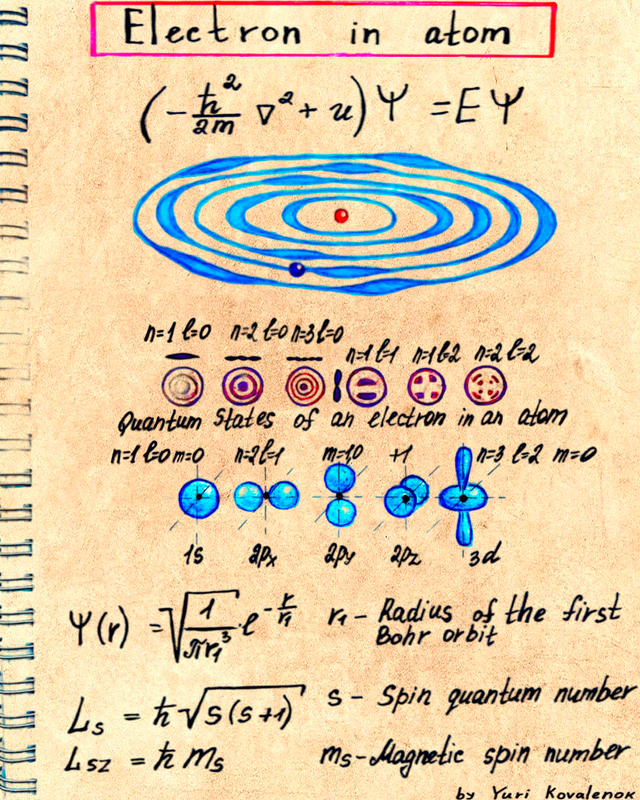 Electron in atom
(-ħ²/2m ∇² + u)Ψ = EΨ
n=1 l=0 n=2 l=0 n=3 l=0
n=1 l=1 n=1 l=2 n=2 l=2
Quantum States of an electron in an atom
n=1 l=0 m=0 n=2 l=1 m=1,0 +1 n=3 l=2 m=0
1s 2px 2py 2pz 3d
Ψ(r) = √(1/πr₁³) · e^(-r/r₁) r₁ - Radius of the first
Bohr orbit
Ls = ħ√(s(s+1)) s - Spin quantum number
Lsz = ħ ms ms - Magnetic spin number
by Yuri Kovalenok